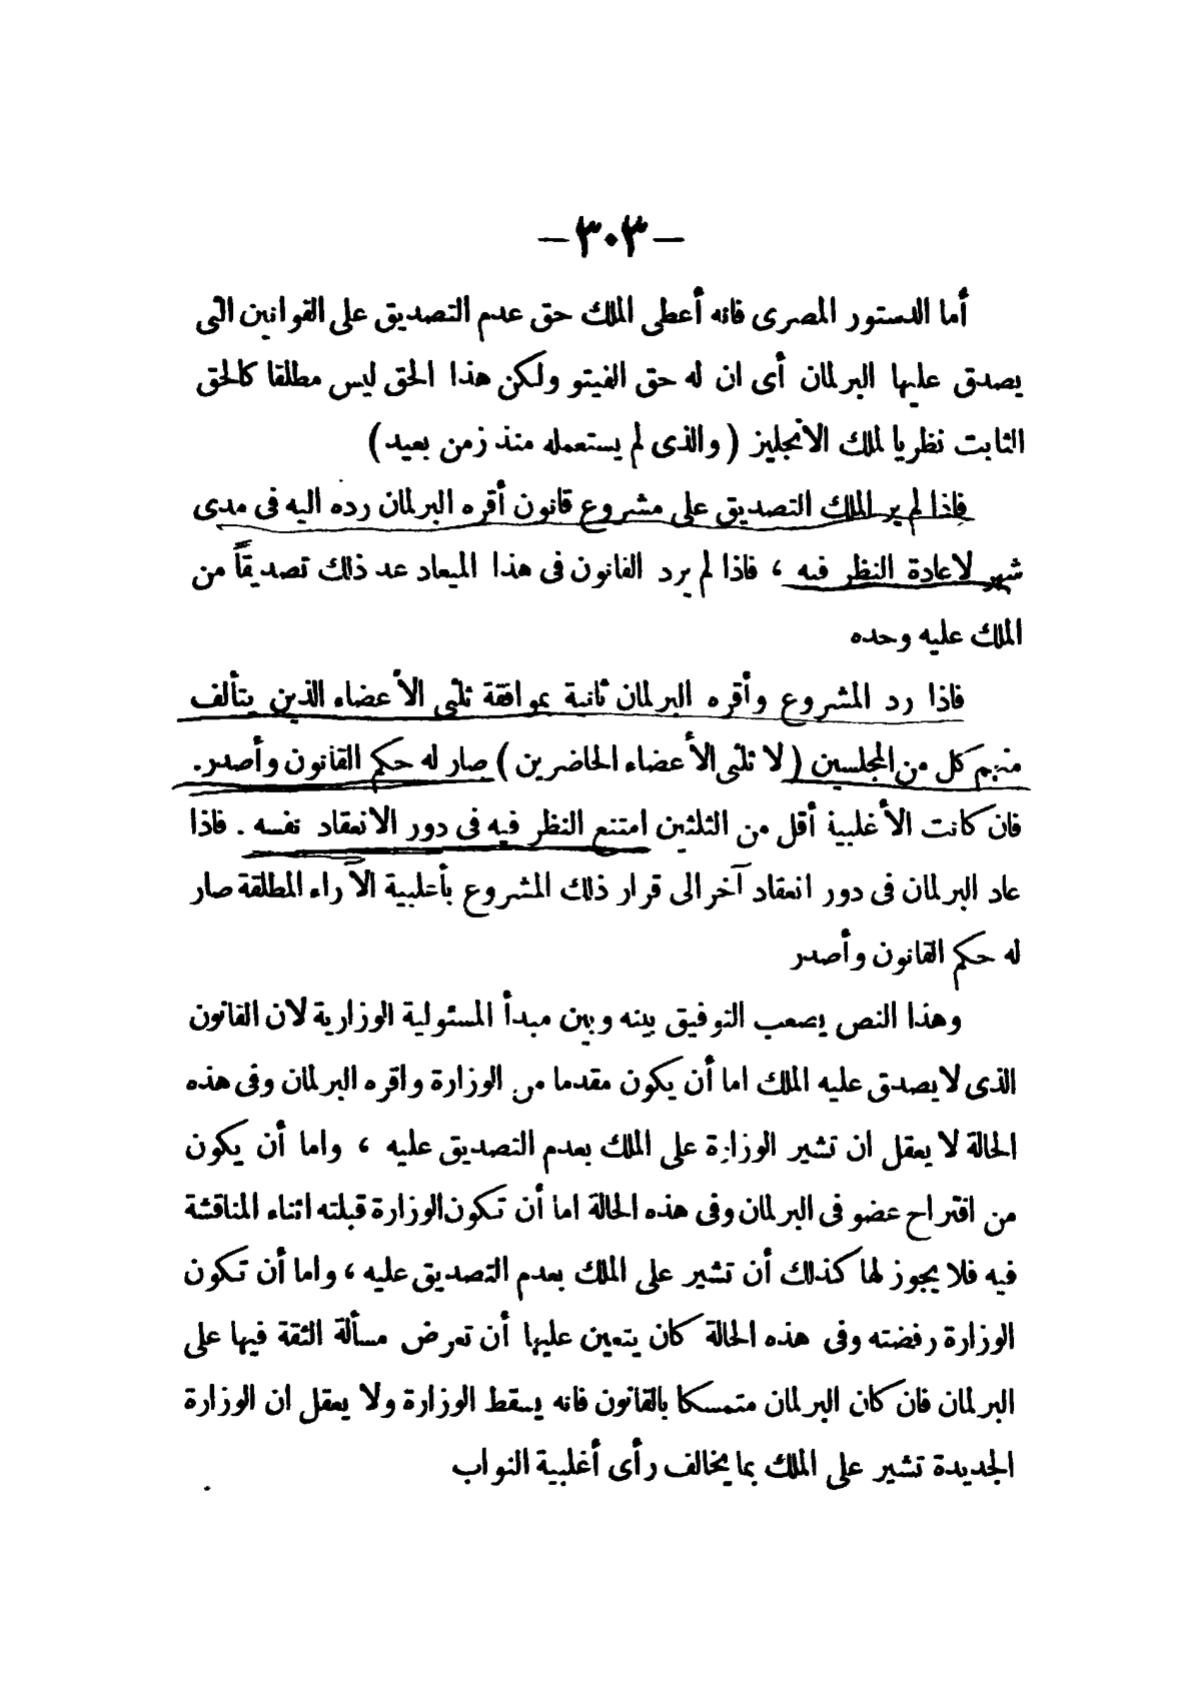 — ٣٠٣ —
أما الدستور المصرى فانه أعطى الملك حق عدم التصديق على القوانين التى
يصدق عليها البرلمان أى ان له حق الفيتو ولكن هذا الحق ليس مطلقا كالحق
الثابت نظريا لملك الانجليز ( والذى لم يستعمله منذ زمن بعيد )
فاذا لم ير الملك التصديق على مشروع قانون أقره البرلمان رده اليه فى مدى
شهر لاعادة النظر فيه ، فاذا لم يرد القانون فى هذا الميعاد عد ذلك تصديقاً من
الملك عليه وحده
فاذا رد المشروع وأقره البرلمان ثانية بموافقة ثلثى الأعضاء الذين يتألف
منهم كل من المجلسين ( لا ثلثى الأعضاء الحاضرين ) صار له حكم القانون وأصدر.
فان كانت الأغلبية أقل من الثلثين امتنع النظر فيه فى دور الانعقاد نفسه . فاذا
عاد البرلمان فى دور انعقاد آخر الى قرار ذلك المشروع بأغلبية الآراء المطلقة صار
له حكم القانون وأصدر
وهذا النص يصعب التوفيق بينه وبين مبدأ المسئولية الوزارية لان القانون
الذى لا يصدق عليه الملك اما أن يكون مقدما من الوزارة واقره البرلمان وفى هذه
الحالة لا يعقل ان تشير الوزارة على الملك بعدم التصديق عليه ، واما أن يكون
من اقتراح عضو فى البرلمان وفى هذه الحالة اما أن تكون الوزارة قبلته اثناء المناقشة
فيه فلا يجوز لها كذلك أن تشير على الملك بعدم التصديق عليه ، واما أن تكون
الوزارة رفضته وفى هذه الحالة كان يتعين عليها أن تعرض مسألة الثقة فيها على
البرلمان فان كان البرلمان متمسكا بالقانون فانه يسقط الوزارة ولا يعقل ان الوزارة
الجديدة تشير على الملك بما يخالف رأى أغلبية النواب